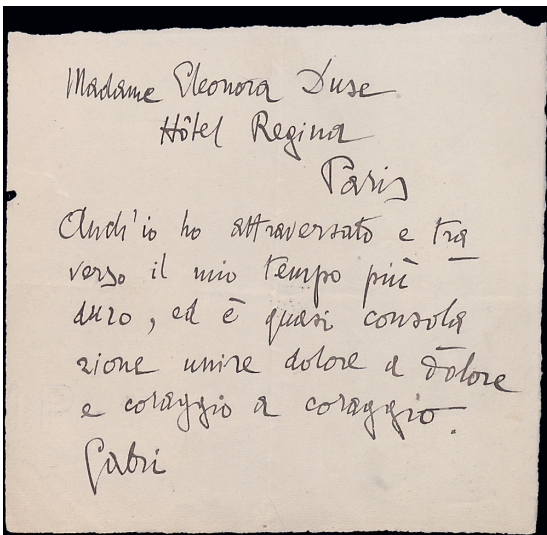 Madame Eleonora Duse
Hôtel Regina
Paris
Anch'io ho attraversato e tra
verso il mio tempo più
duro, ed è quasi consola
zione unire dolore a dolore
e coraggio a coraggio.
Gabri